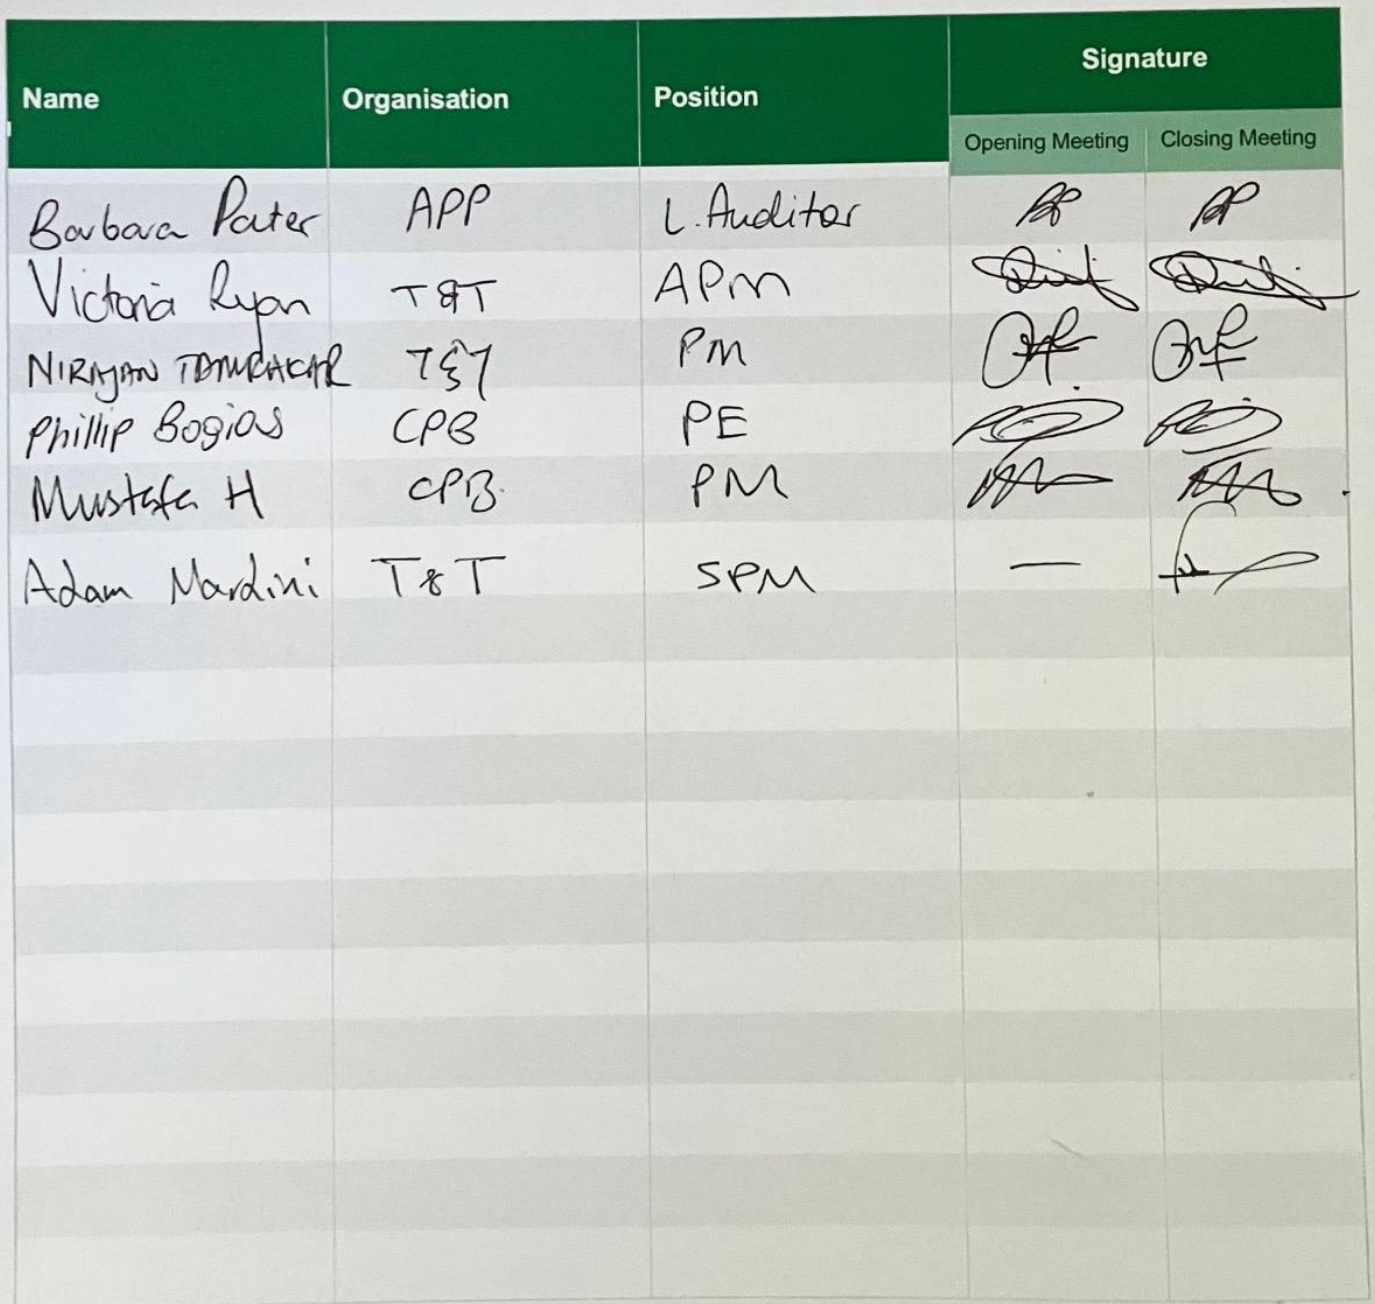 Name Organisation Position Signature
Opening Meeting Closing Meeting
Barbara Pater APP L. Auditor
Victoria Ryan T&T APM
NIRAJAN TAMRAKAR T&T PM
Phillip Bogias CPB PE
Mustafa H CPB PM
Adam Mardini T&T SPM —